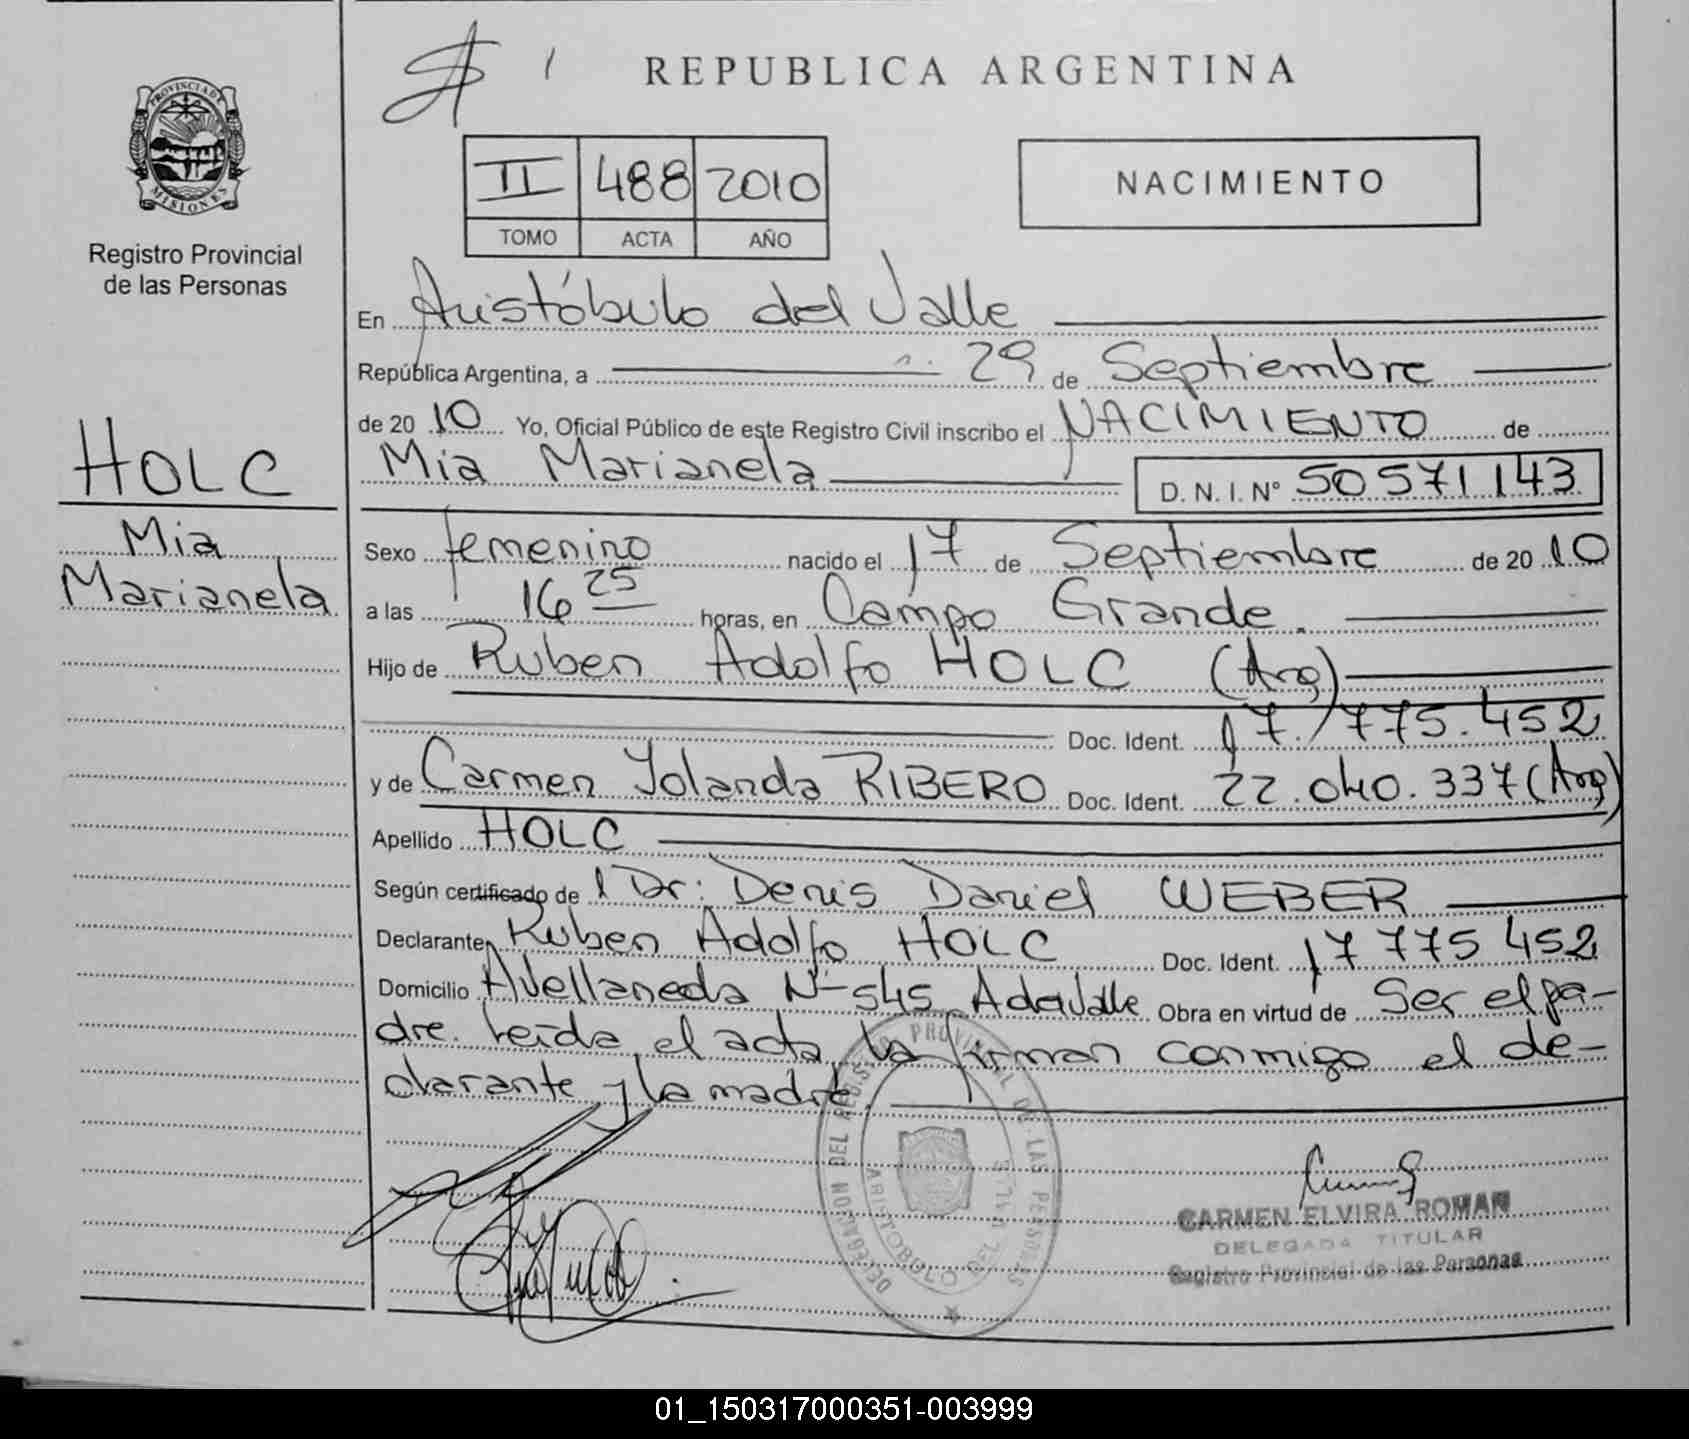 REPUBLICA ARGENTINA
PROVINCIA DE
MISIONES
Registro Provincial
de las Personas
II 488 2010
TOMO ACTA AÑO
NACIMIENTO
En Aristóbulo del Valle
República Argentina, a 29 de Septiembre
de 2010 Yo, Oficial Público de este Registro Civil inscribo el NACIMIENTO de
Mia Marianela D. N. I. N° 50 571 143
HOLC
Mia
Marianela
Sexo femenino nacido el 17 de Septiembre de 2010
a las 16 25 horas, en Campo Grande.
Hijo de Ruben Adolfo HOLC (Arg)
Doc. Ident. 17.775.452
y de Carmen Yolanda RIBERO Doc. Ident. 22.040.337 (Arg)
Apellido HOLC
Según certificado de l Dr: Denis Daniel WEBER
Declarante Ruben Adolfo HOLC Doc. Ident. 17 775 452
Domicilio Avellaneda N° 545 A del Valle Obra en virtud de Ser el pa-
dre. Leída el acta la firman conmigo el de-
clarante y la madre.
DELEGACION DEL REGISTRO PROVINCIAL DE LAS PERSONAS
ARISTOBULO DEL VALLE
CARMEN ELVIRA ROMAN
DELEGADA TITULAR
Registro Provincial de las Personas
01_150317000351-003999